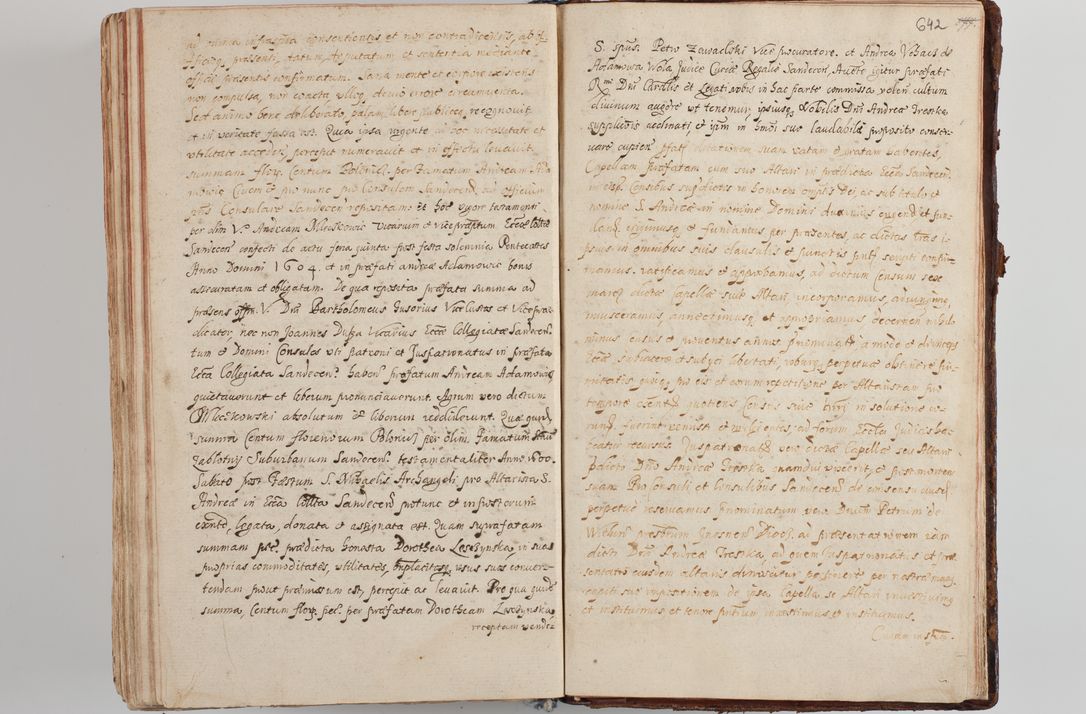 ad omnia infrascripta consentientis et non contradicentis, ab of:
officio praesenti, datum, deputatum et sententia mediante
officii praesentis confirmatum. Sana mente et corpore existens
non compulsa, non coacta, devio errore circumventa.
Sed animo bene deliberato, palam libere publice recognovit
et in veritate fassa est. Quia ipsa urgente in hoc necessitate et
utilitate accepit percepit numeravit et in effectu levavit
summam flor. Centum Polonica. per famatum Andream Ada
movic Cuem et pro nunc pro Consulem Sandecen. ad officium
pns Consulare Sandecen repositam: Et hoc vigore testamenti
per olim V. Andream Mleczkowic Vicarium et vicepraepositum Eccae Colltae
Sandecen confecti de actu feria quinta post festa solemnia Pentecostes
Anno Domini 1604. et in praefati Andreae Adamowic bonis
assecuratam et obligatam. De qua reposita praefata summa ad
praesens offm. V. Dni Bartholomeus Fusorius Vicecustos et Vicepra
dicator, nec non Joannes Duza Vicarius Eccae Collegiatae Sandecen.
tum et Domini Consules uti patroni et Juspatronatus in praefata
Ecca Collegiata Sandecen. haben praefatum Andream Adamowic
quietaverunt et liberum pronunciaverunt. Agrum vero dictum
Mleczkowski absolutum et liberum reddiderunt. Quae quid
summa Centum florenorum Polonic. per olim. Famatum Stan
Zablotny Suburbanum Sandecen. testamentaliter Anno 1600.
Sabbato post Festum S. Michaelis Archangeli pro Altarista S.
Andreae in Ecca Collta Sandecen protunc et in posterum
existe, legata, donata et assignata est. Quam suprafatam
summam pec. praedicta honesta Dorothea Leszynska, in suas
proprias commoditates, utilitates, usus suos conver:
tendam prout praemissum est, percepit ac levavit. Pro qua quid
summa, Centum flor. pec. per praefatam Dorotheam Leszynska
receptam vende:
642
S. ipus. Petro Zawadski Vice procuratore. et Andrea Vohacs de
Adamowa Wola Judice Curiae Regalis Sanderen. Aucte igitur praefati
R.mi Dni Cardlis et Legati nobis in hac parte commissa volen cultum
divinum augere ut tenemur, ipsiusq. Nobilis Dni Andreae Treska
supplicibus acclinati et ipm in hmoi suo laudabili proposito conser:
vare cupien pfat. dotationem suam ratam et gratam habentes,
Capellam praefatam cum suo Altari in praedicta Ecca Sandecen.
in eisp. Censibus suprdictis in honorem omptis Dei ac sub titulo et
nomine S. Andreae in nomine Domini duximus erigend. et fun:
dand. erigimusq. et fundamus per praesentes, ac dictas lras i:
psius in omnibus suis clausulis et punctis pntf. confir:
mamus. ratificamus et approbamus, ad dictum Censum sex
marc. dictae Capellae sive Altari incorporamus, adiungimus
invisceramus, annectimusq. et appropriamus decernen nihilo
minus census et proventus annos praenominatos a modo et deinceps
Eccae subiacere et subiici libertati, robur. perpetuae obtinere fir:
mitatis quoque pro eis et eorum repetitione per Altaristam pro
tempore exentem quotiens Census sive in solutione eo:
rund. fuerint remissi et negligentes, ad forum Ecclae Judicis ha:
beatur recursus. Juspatronatus vero dictae Capellae seu Altari
pdicto Dno Andreae Treska quamdiu vixerit, et post mortem
suam Pro Consuli et Consulibus Sandecen de consensu eiusd.
perpetuo reservamus pnominatum vero Dnum Petrum de
Wielun presbrum Gnesnen Dioec. ad praesentationem eidm
dicti Dni Andreae Treska, ad quem Juspatronatus et prae
sentatio eiusdem altaris dinoscitur pertinere per nostram
capiti sui impositionem de ipsa Capella se Altari investivimus
et instituimus et tenore pntium investimus et instituimus.